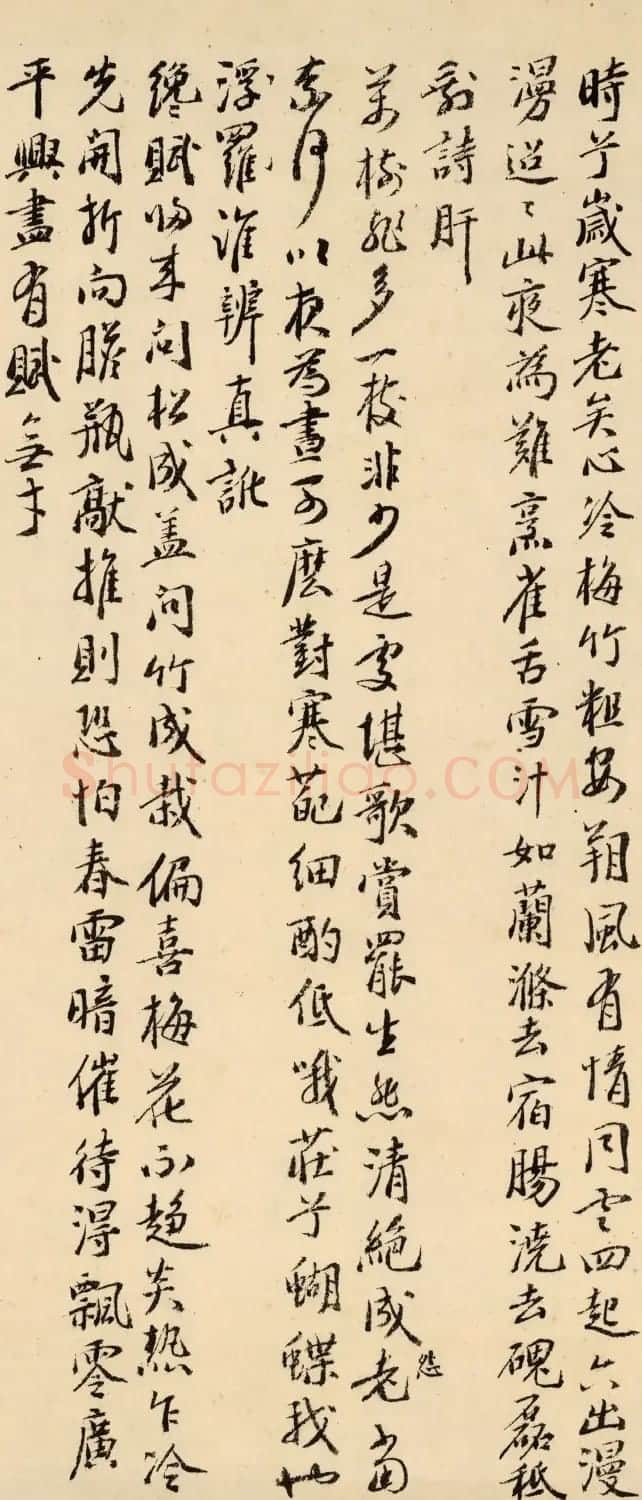 時乎歲寒老矣心冷梅竹粗安朔風有情同雲四起六出漫
漫迢〻此夜為難烹雀舌雪汁如蘭滌去宿腸澆去磈磊秪
剩詩肝
萬樹非多一枝非少是處堪歌賞罷生愁清絕成老當
奈何以夜為晝可麼對寒葩細酌低哦莊乎蝴蝶我也
浮羅誰辨真訛
纔賦歸來問松成蓋問竹成栽偏喜梅花不趨炎熱乍冷
先開折向膽瓶敲推則恐怕春雷暗催待得飄零廣
平興盡有賦無才
Shufaziliao.COM